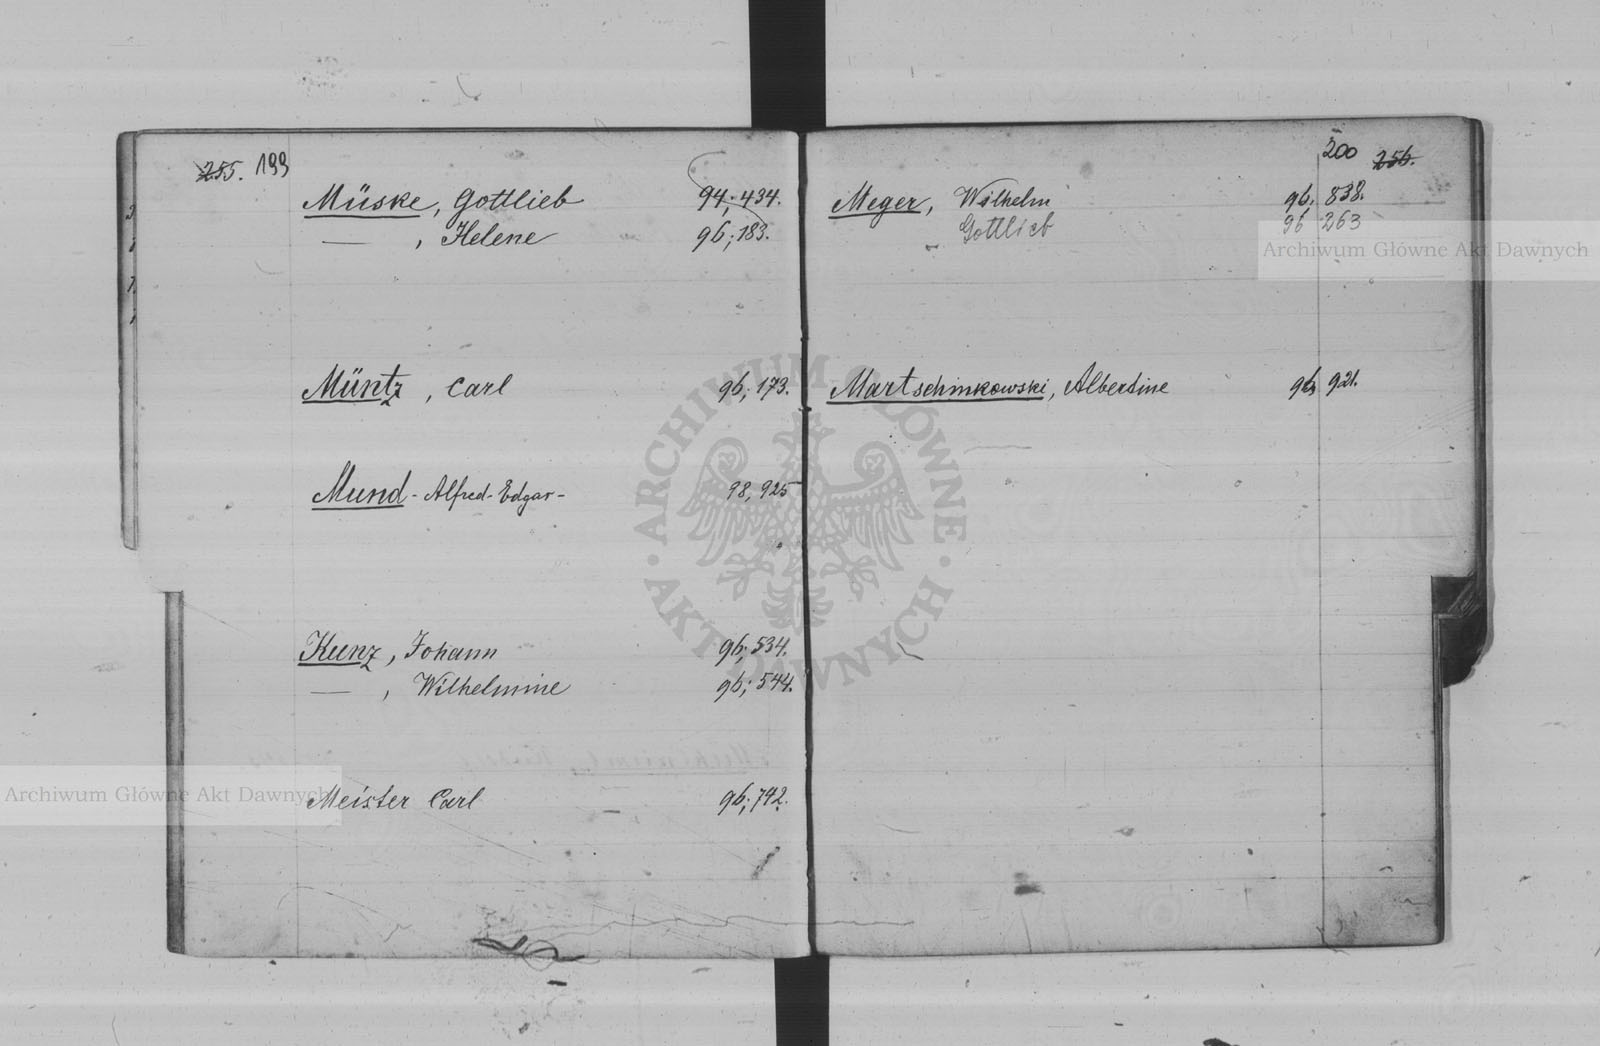 255. 199
Müske, Gottlieb 94; 434.
— , Helene 96; 183.
Müntz, Carl 96; 173.
Mund - Alfred - Edgar - 98, 925
Kunz, Johann 96; 534.
— , Wilhelmine 96; 544.
Meister Carl 96; 742.
200 256.
Meger, Wilhelm 96. 838.
„ Gottlieb 96 263
Martschinkowski, Albertine 96, 921.
Archiwum Główne Akt Dawnych
Archiwum Główne Akt Dawnych
ARCHIWUM GŁÓWNE · AKT DAWNYCH ·